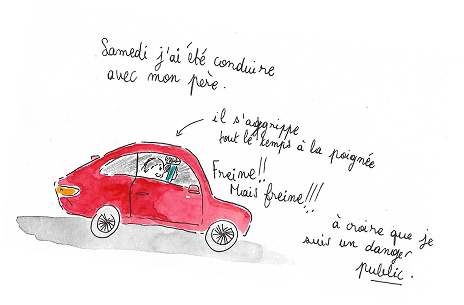 Samedi j'ai été conduire
avec mon père.
il s'aggrippe
tout le temps à la poignée
Freine!!
Mais freine!!!
à croire que je
suis un danger
public.